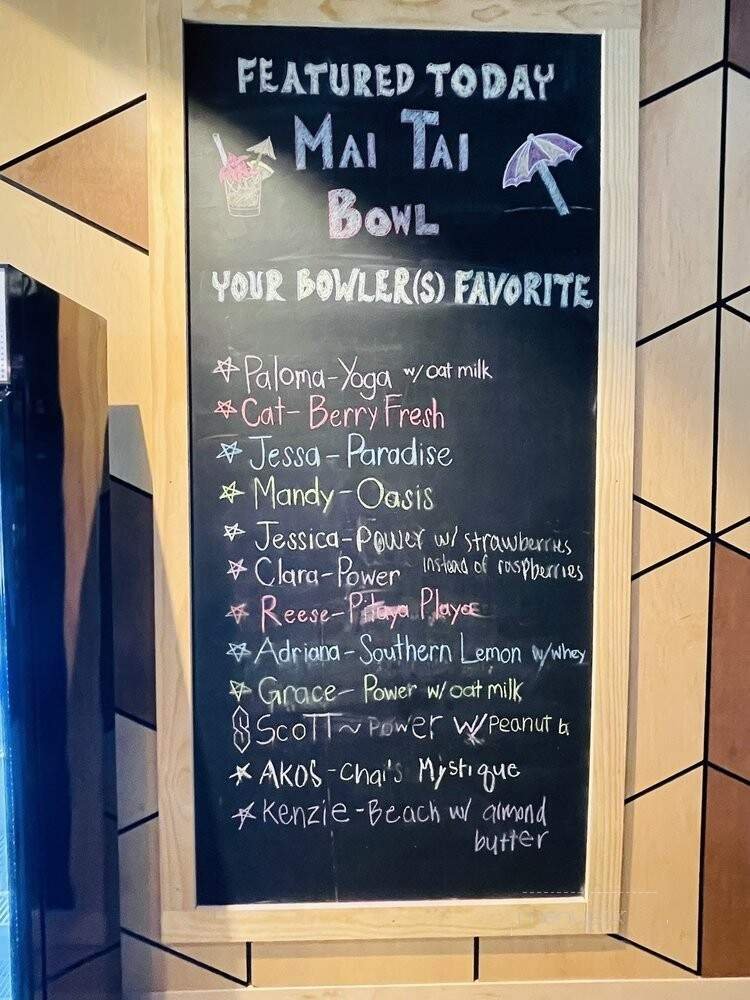 FEATURED TODAY
MAI TAI
BOWL
YOUR BOWLER(S) FAVORITE
Paloma-Yoga w/ oat milk
Cat-Berry Fresh
Jessa-Paradise
Mandy-Oasis
Jessica-Power w/ strawberries
instead of raspberries
Clara-Power
Reese-Pitaya Playa
Adriana-Southern Lemon w/whey
Grace-Power w/ oat milk
Scott~Power w/Peanut b
AKOS-Chai's Mystique
Kenzie-Beach w/ almond
butter